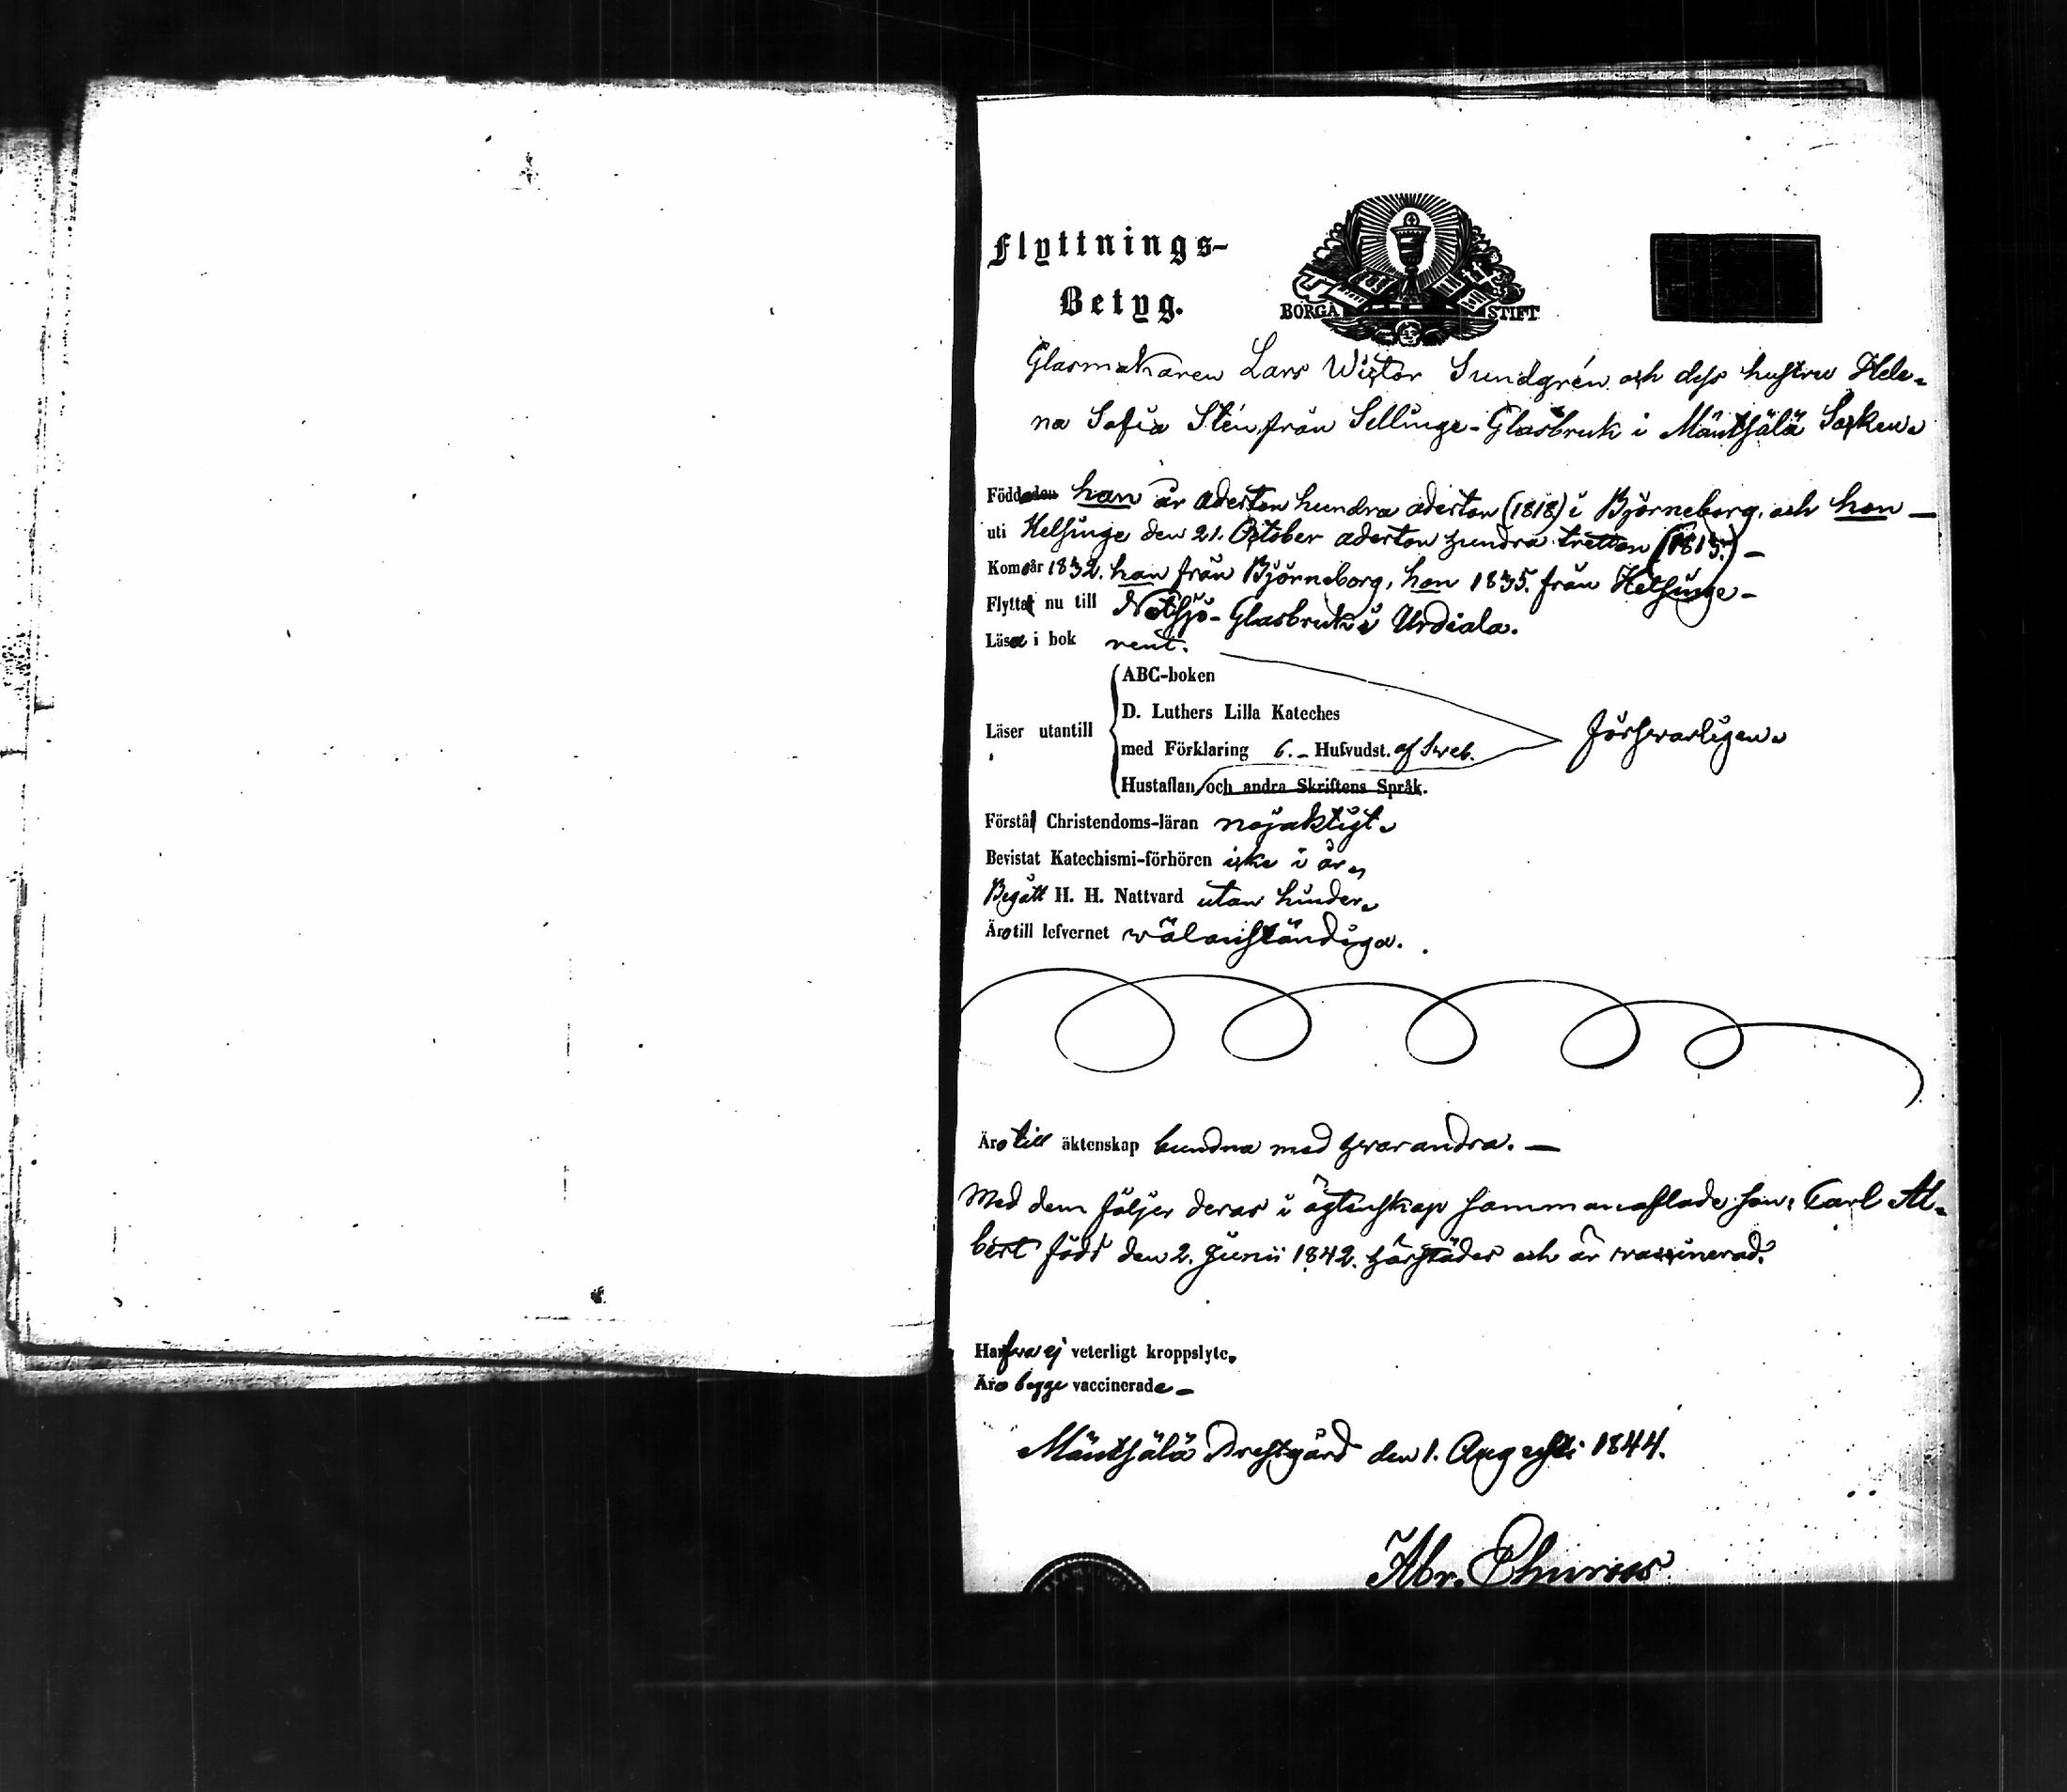 Flyttnings-
Betyg.
BORGÅ STIFT
Glasmakaren Lars Wictor Sundgrén och dess hustru Hele-
na Sofia Stén från Sellinge-Glasbruk i Mäntsälä Socken.
Födde den han år aderton hundra aderton (1818) i Björneborg, och hon —
uti Helsinge den 21. October aderton hundra tretton (1813.) —
Kom år 1832. han från Björneborg, hon 1835. från Helsinge —
Flytta nu till Notsjö-Glasbruk i Urdiala.
Läsa i bok rent.
Läser utantill
ABC-boken
D. Luthers Lilla Kateches
med Förklaring 6. - Hufvudst. af Sveb.
Hustaflan och andra Skriftens Språk.
försvarligen.
Förstå Christendoms-läran nöjaktigt.
Bevistat Katechismi-förhören icke i år,
Begått H. H. Nattvard utan hinder.
Äro till lefvernet wälanständiga.
Äro till äktenskap bundna med hvarandra. —
Med dem följer deras i ägtenskap sammanaflade son, Carl Al-
bert född den 2. Junii 1842. härstädes och är vaccinerad.
Hafva ej veterligt kroppslyte.
Äro begge vaccinerade -
Mäntsälä Prestgård den 1. Augusti 1844.
Abr.